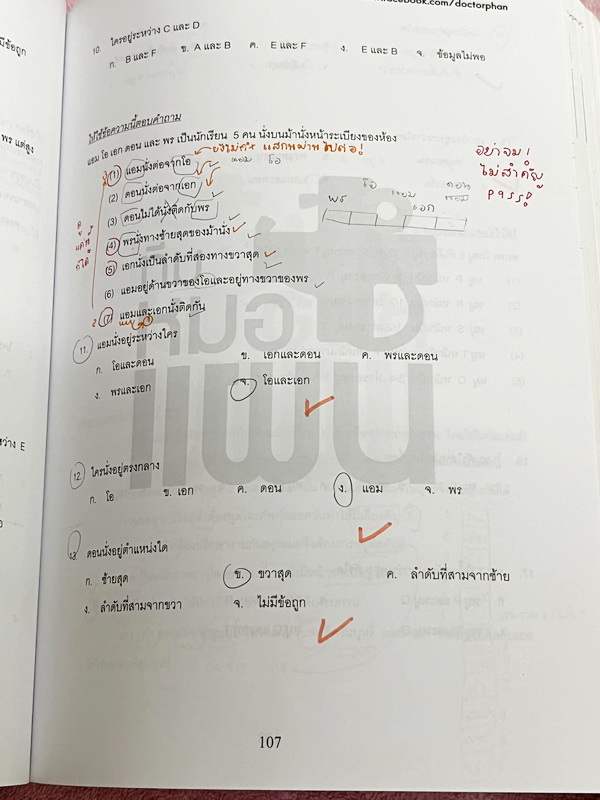 facebook.com/doctorphan
10. ใครอยู่ระหว่าง C และ D
ก. B และ F ข. A และ B ค. E และ F ง. E และ B จ. ข้อมูลไม่พอ
ให้ใช้ข้อความนี้ตอบคำถาม
แอม โอ เอก ดอน และ พร เป็นนักเรียน 5 คน นั่งบนม้านั่งหน้าระเบียงของห้อง
(1) แอมนั่งต่อจากโอ
แอม โอ
อย่าจม!
ไม่สำคัญ
(2) ดอนนั่งต่อจากเอก
โอ ดอน
พร แอม แอม
เอก
(3) ดอนไม่ได้นั่งติดกับพร
(4) พรนั่งทางซ้ายสุดของม้านั่ง
(5) เอกนั่งเป็นลำดับที่สองทางขวาสุด
(6) แอมอยู่ด้านขวาของโอและอยู่ทางขวาของพร
(7) แอมและเอกนั่งติดกัน
11. แอมนั่งอยู่ระหว่างใคร
ก. โอและดอน ข. เอกและดอน ค. พรและดอน
ง. พรและเอก จ. โอและเอก
12. ใครนั่งอยู่ตรงกลาง
ก. โอ ข. เอก ค. ดอน ง. แอม จ. พร
13. ดอนนั่งอยู่ตำแหน่งใด
ก. ซ้ายสุด ข. ขวาสุด ค. ลำดับที่สามจากซ้าย
ง. ลำดับที่สามจากขวา จ. ไม่มีข้อถูก
107